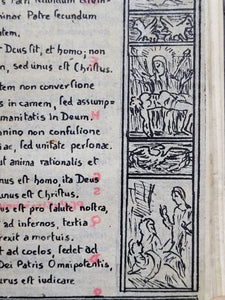 minor Patre secundum
tem.
Deus sit, et homo; non
, sed unus est Christus.
tem non conversione
is in carnem, sed assump-
umanitatis in Deum.
nino non confusione
iae, sed unitate personae.
ut anima rationalis et
unus est homo, ita Deus
unus est Christus.
est pro salute nostra,
ad infernos, tertia
rexit a mortuis.
et ad coelos, sedet ad
Dei Patris Omnipotentis,
urus est iudicare